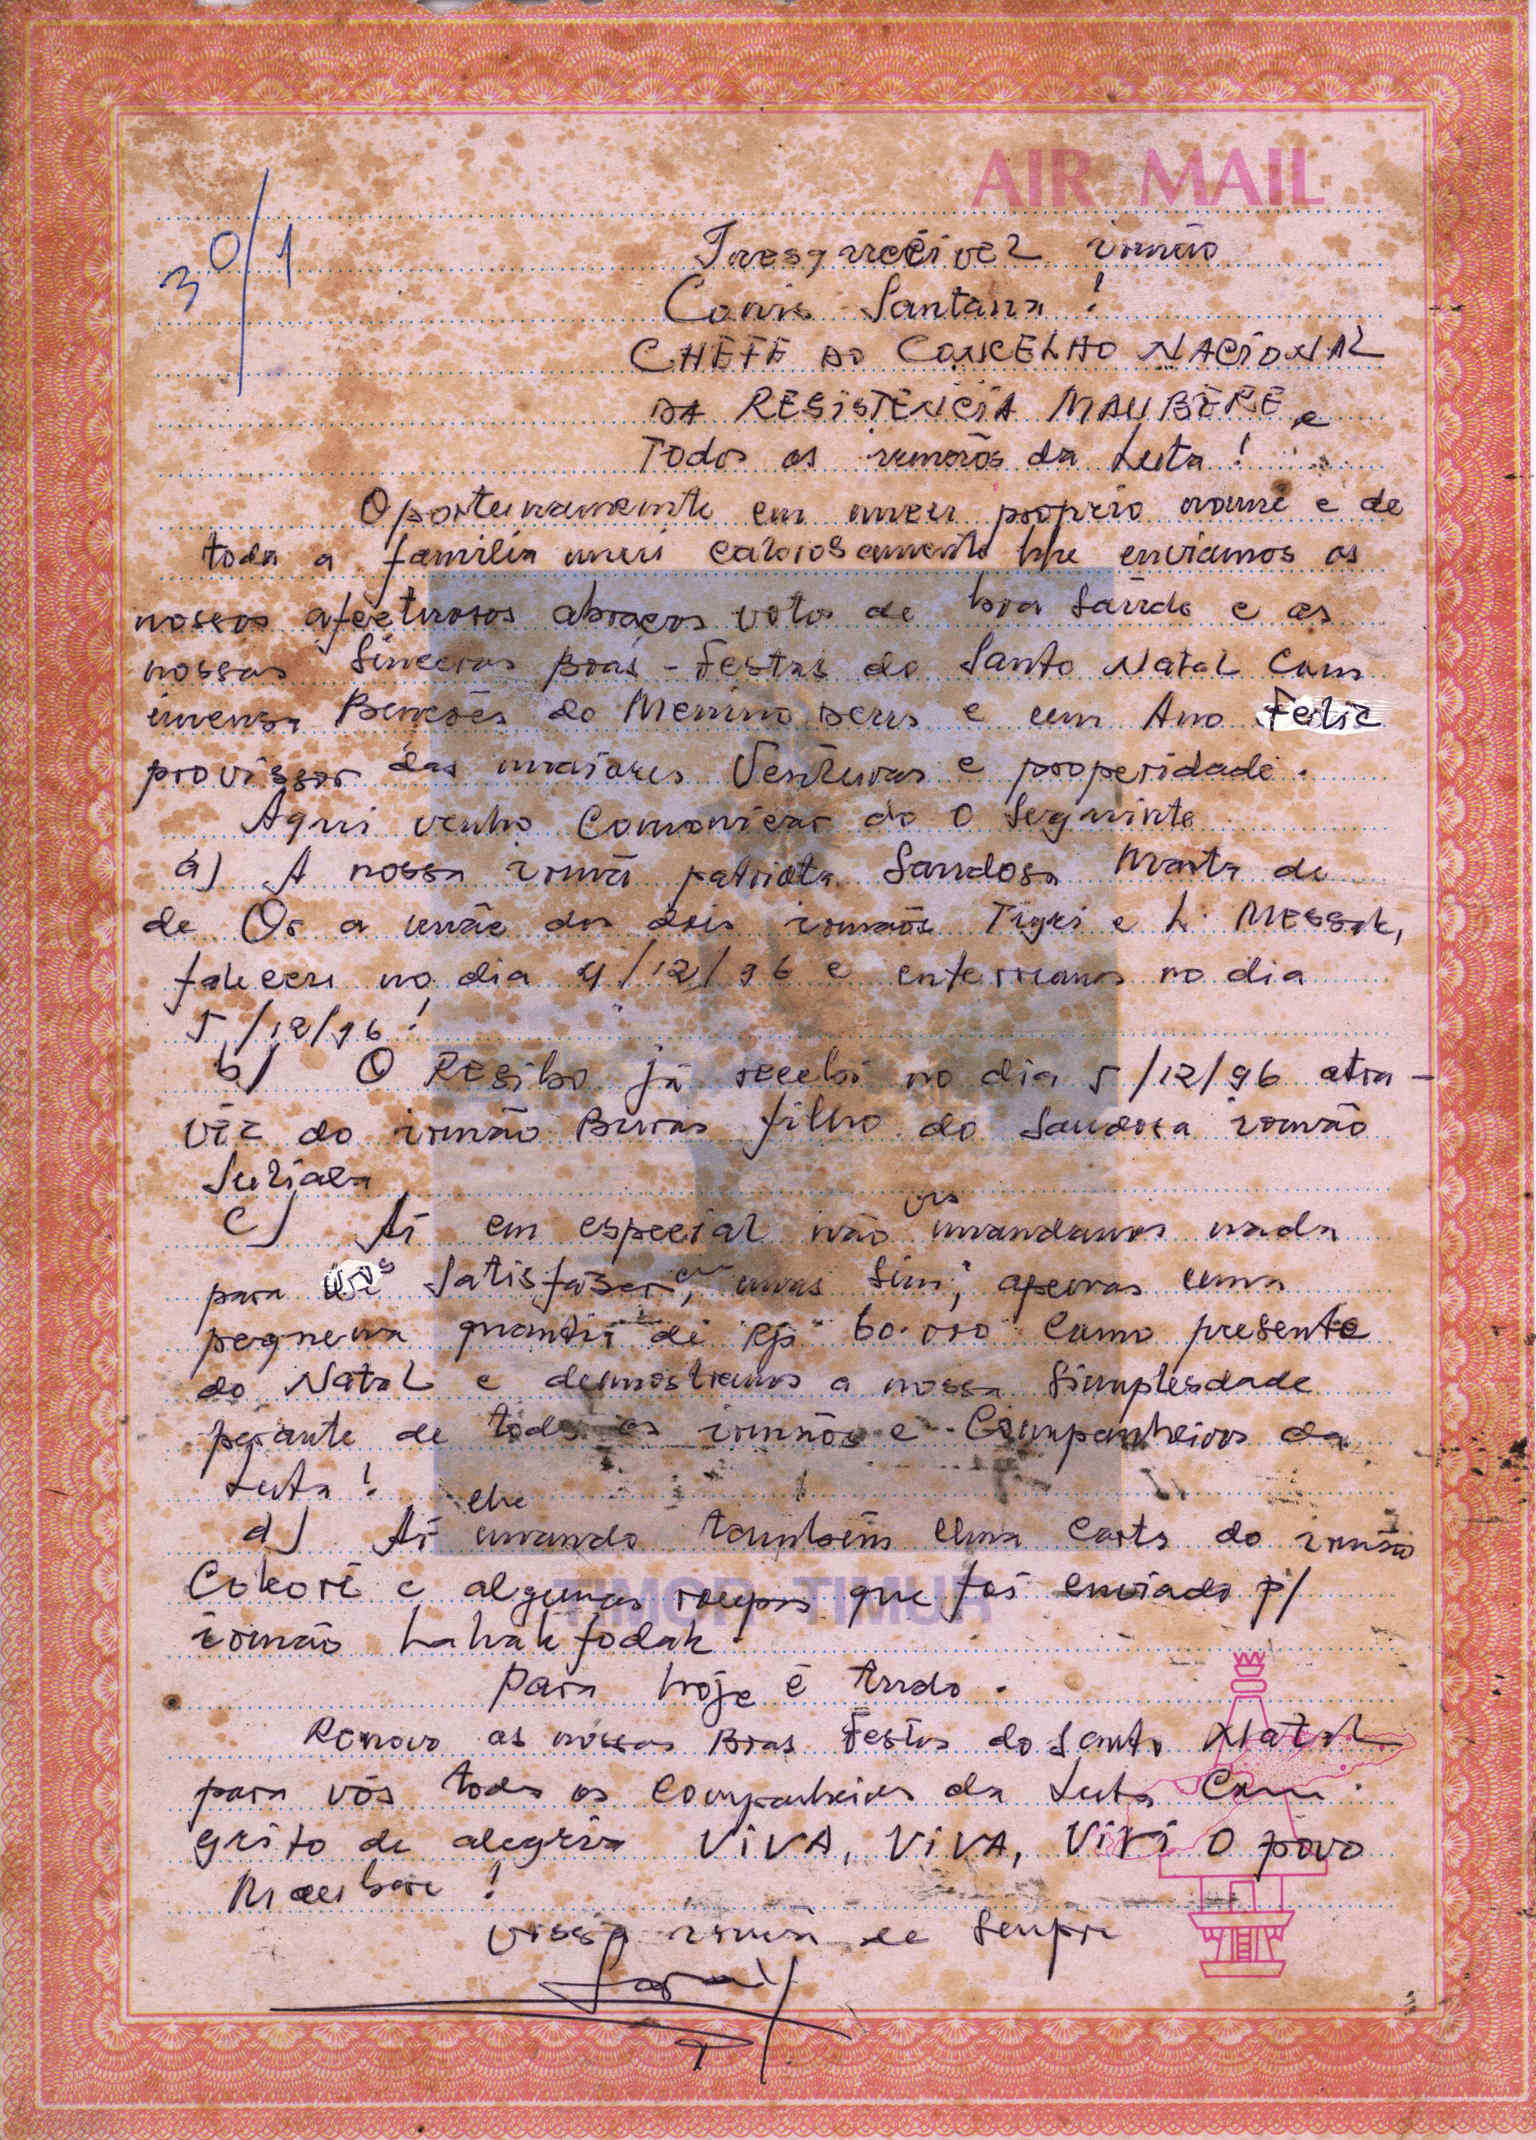 AIR MAIL
30/1
Inesquecível irmão
Conis Santana!
CHEFE DO CONCELHO NACIONAL
DA RESISTÊNCIA MAUBERE e
Todos os irmãos da Luta!
Oportunamente em meu proprio nome e de
toda a familia meu calorosamente lhe enviamos os
nossos afectuosos abraços votos de boa Saúde e as
nossas Sinceras Boas-Festas do Santo Natal Com
imensa Bençõẽs do Menino Deus e um Ano Feliz
provissor das maiores Venturas e properidade.
Aqui venho Comonicar do O Seguinte
a) A nossa irmã patriota Saudosa Marta de
de Os a mãe dos dois irmãos Tigri e L. Messak,
faleceu no dia 4/12/96 e enterramos no dia
5/12/96!
b) O Resibo já recebi no dia 5/12/96 atra-
véz do irmão Buras filho do Saudosa irmão
c) Aí em especial não vos mandamos nada
para vos Satisfazer, mas Sim; apenas uma
pequena quantia de Rp 60.000 Como presente
do Natal e demostramos a nossa Simplesdade
perante de todos os irmãos e Companheiros da
Luta!
d) Aí lhe mando também uma Carta do irmão
Cokori e algumas roupas que foi enviado p/
irmão Lahakfodak.
Para hoje é tudo.
TIMOR TIMUR
Renovo as nossas Boas Festas do Santo Natal
para vós todos os Companheiros da Luta Com
grito de alegria VIVA, VIVA, VIVI O povo
Maubere!
Vossa irmã de Sempre